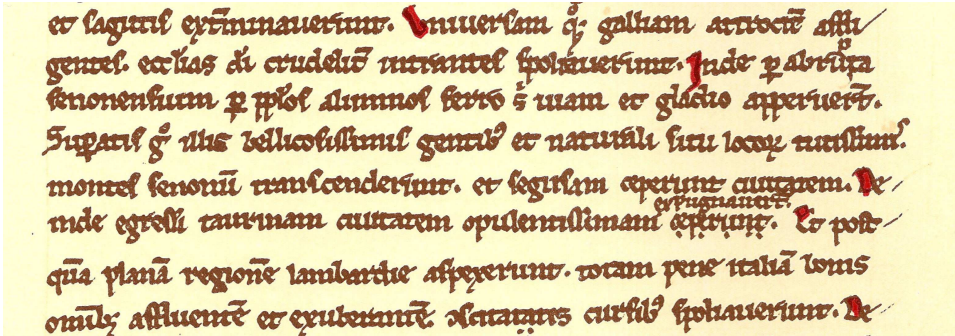 et sagittis ext̄minaveriunt. Vniuersam qꝫ galliam atrocit̄ affli/
gentes. eccl̄ias dī crudelit̄ intrantes spoliauerunt. Inde ꝑ abrupta
senonensium ꝑ pp̄os alumnos ferro s̄ uiam et gladio apperuer̄t.
Suꝑatis gͦ illis bellicosissimis gentibꝰ et naturali situ locoꝝ tutissimis.
montes senonū transcenderunt. et segusam ceperunt ciuitatem. De/
inde egressi taurinam ciuitatem opulentissimam expugnauer̄t. ceperunt. Et post/
quā planā regionē lambardie aspexerunt. totam pene italiā bonis
omībꝫ affluentē et exuberantē. ꝯcitatis cursibꝰ spoliauerunt. De/